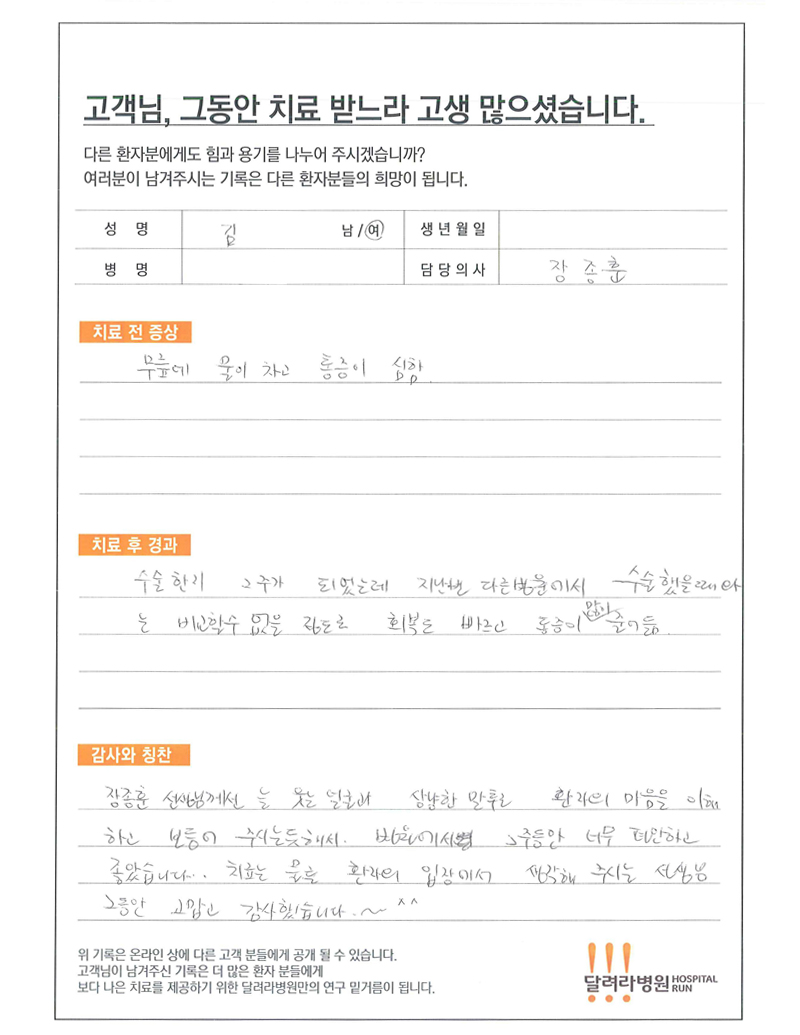 고객님, 그동안 치료 받느라 고생 많으셨습니다.
다른 환자분에게도 힘과 용기를 나누어 주시겠습니까?
여러분이 남겨주시는 기록은 다른 환자분들의 희망이 됩니다.
성 명 김 남/여 생년월일
병 명 담당의사 장종훈
치료 전 증상
무릎에 물이 차고 통증이 심함.
치료 후 경과
수술한리 2주가 되었는데 지난번 다른병원에서 수술했을때와
는 비교할수 없을 정도로 회복도 빠르고 통증이 많이 줄어듦.
감사와 칭찬
장종훈 선생님께선 늘 웃는 얼굴과 상냥한 말투로 환자의 마음을 이해
하고 보듬어 주시는듯해서. 병원에서 2주동안 너무 편안하고
좋았습니다.. 치료는 물론 환자의 입장에서 생각해 주시는 선생님
그동안 고맙고 감사했습니다.~ ^^
위 기록은 온라인 상에 다른 고객 분들에게 공개 될 수 있습니다.
고객님이 남겨주신 기록은 더 많은 환자 분들에게
보다 나은 치료를 제공하기 위한 달려라병원만의 연구 밑거름이 됩니다.
달려라병원 HOSPITAL RUN